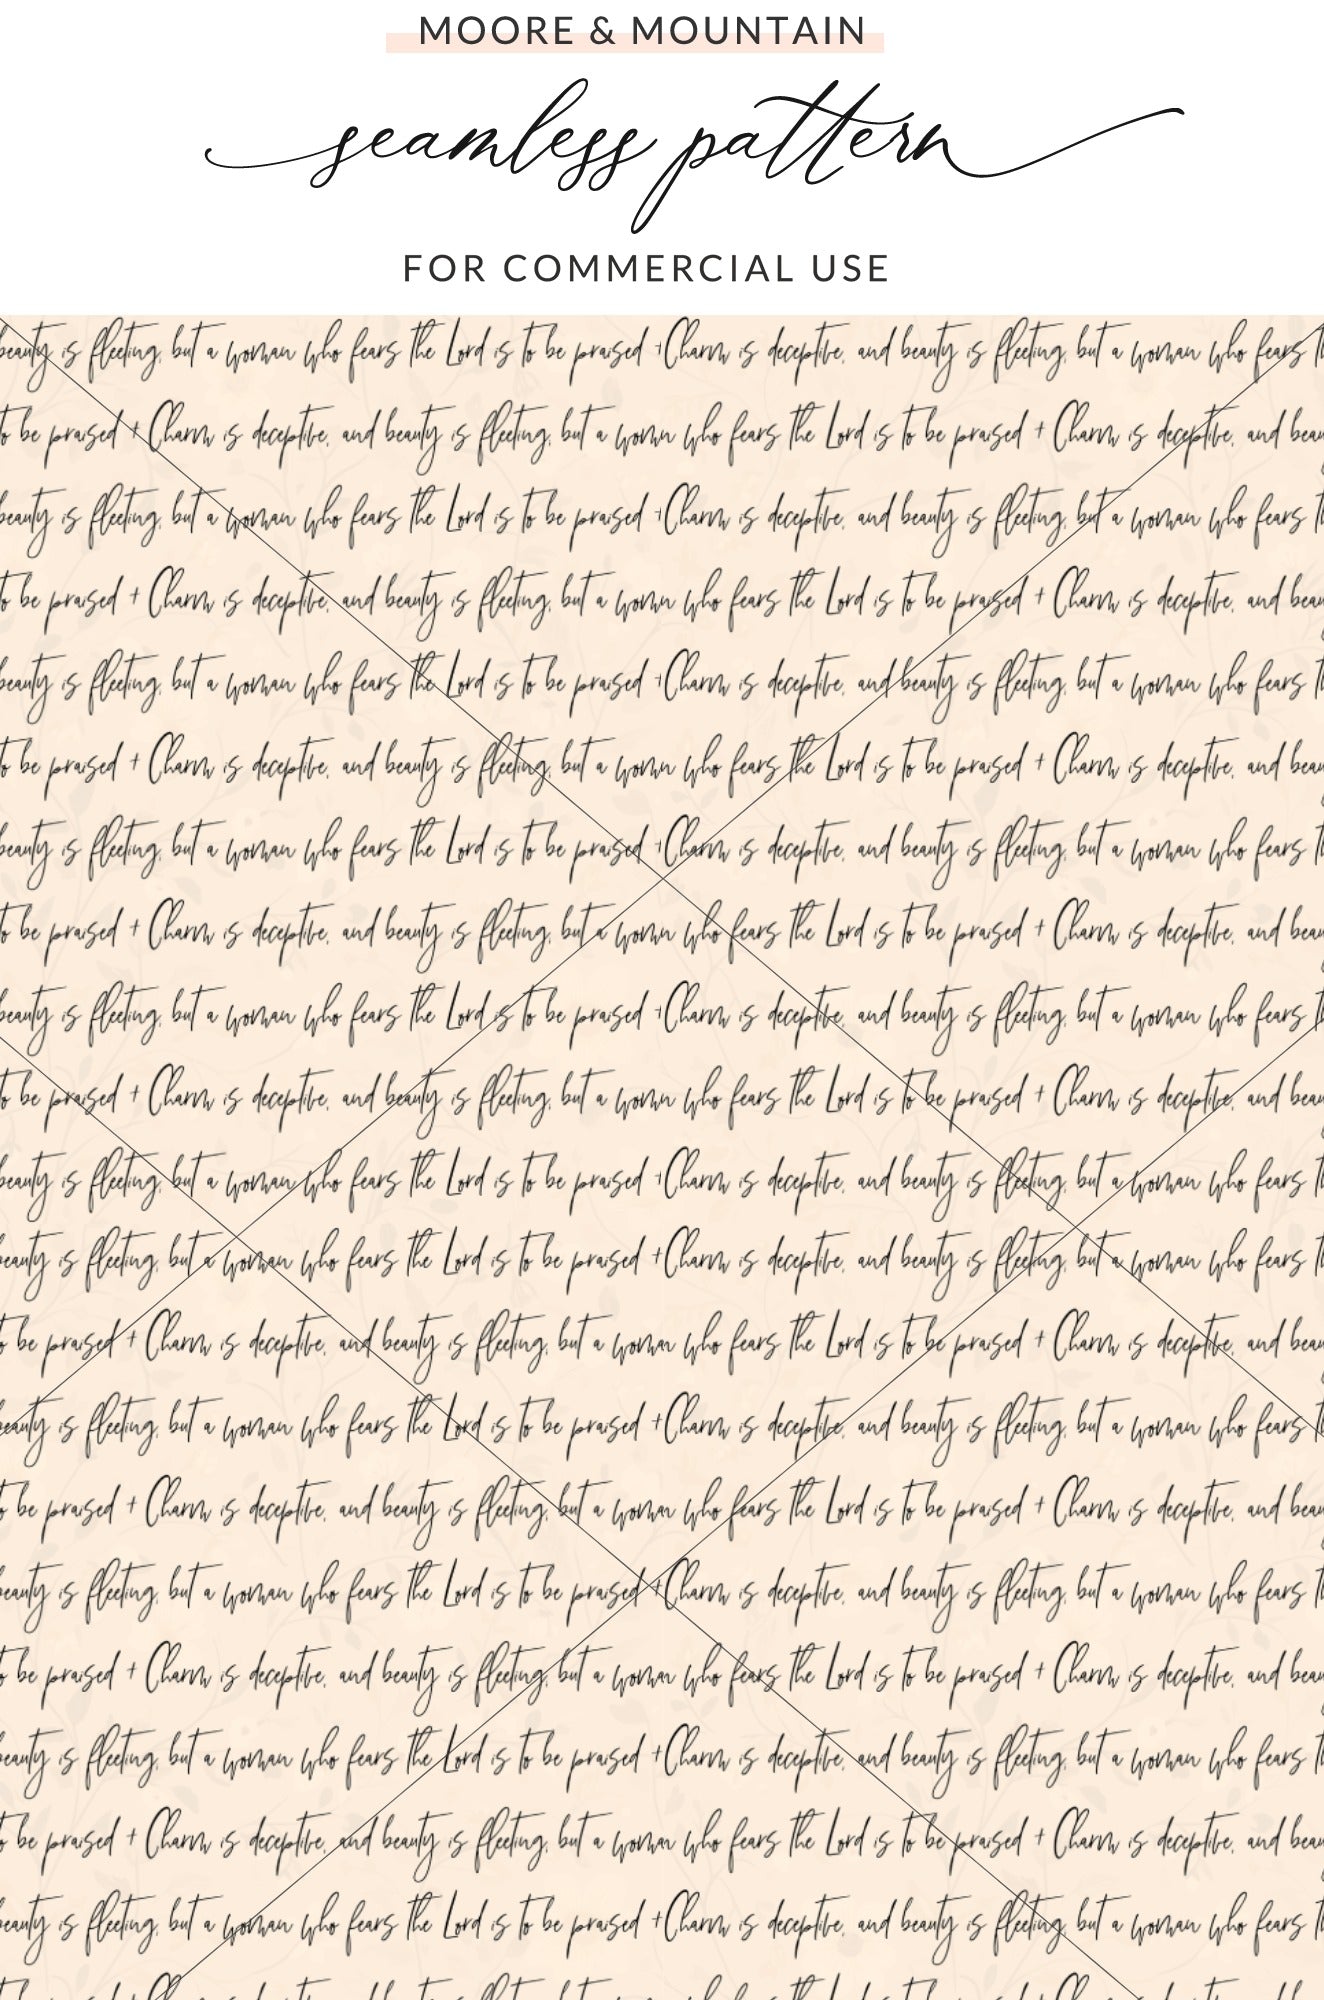 MOORE & MOUNTAIN
seamless pattern
FOR COMMERCIAL USE
beauty is fleeting, but a woman who fears the Lord is to be praised + Charm is deceptive, and beauty is fleeting, but a woman who fears th
to be praised + Charm is deceptive, and beauty is fleeting, but a woman who fears the Lord is to be praised + Charm is deceptive, and beau
beauty is fleeting, but a woman who fears the Lord is to be praised + Charm is deceptive, and beauty is fleeting, but a woman who fears th
to be praised + Charm is deceptive, and beauty is fleeting, but a woman who fears the Lord is to be praised + Charm is deceptive, and beau
beauty is fleeting, but a woman who fears the Lord is to be praised + Charm is deceptive, and beauty is fleeting, but a woman who fears th
to be praised + Charm is deceptive, and beauty is fleeting, but a woman who fears the Lord is to be praised + Charm is deceptive, and beau
beauty is fleeting, but a woman who fears the Lord is to be praised + Charm is deceptive, and beauty is fleeting, but a woman who fears th
to be praised + Charm is deceptive, and beauty is fleeting, but a woman who fears the Lord is to be praised + Charm is deceptive, and beau
beauty is fleeting, but a woman who fears the Lord is to be praised + Charm is deceptive, and beauty is fleeting, but a woman who fears th
to be praised + Charm is deceptive, and beauty is fleeting, but a woman who fears the Lord is to be praised + Charm is deceptive, and beau
beauty is fleeting, but a woman who fears the Lord is to be praised + Charm is deceptive, and beauty is fleeting, but a woman who fears th
beauty is fleeting, but a woman who fears the Lord is to be praised + Charm is deceptive, and beauty is fleeting, but a woman who fears th
to be praised + Charm is deceptive, and beauty is fleeting, but a woman who fears the Lord is to be praised + Charm is deceptive, and beau
beauty is fleeting, but a woman who fears the Lord is to be praised + Charm is deceptive, and beauty is fleeting, but a woman who fears th
to be praised + Charm is deceptive, and beauty is fleeting, but a woman who fears the Lord is to be praised + Charm is deceptive, and beau
beauty is fleeting, but a woman who fears the Lord is to be praised + Charm is deceptive, and beauty is fleeting, but a woman who fears th
to be praised + Charm is deceptive, and beauty is fleeting, but a woman who fears the Lord is to be praised + Charm is deceptive, and beau
beauty is fleeting, but a woman who fears the Lord is to be praised + Charm is deceptive, and beauty is fleeting, but a woman who fears th
to be praised + Charm is deceptive, and beauty is fleeting, but a woman who fears the Lord is to be praised + Charm is deceptive, and beau
beauty is fleeting, but a woman who fears the Lord is to be praised + Charm is deceptive, and beauty is fleeting, but a woman who fears th